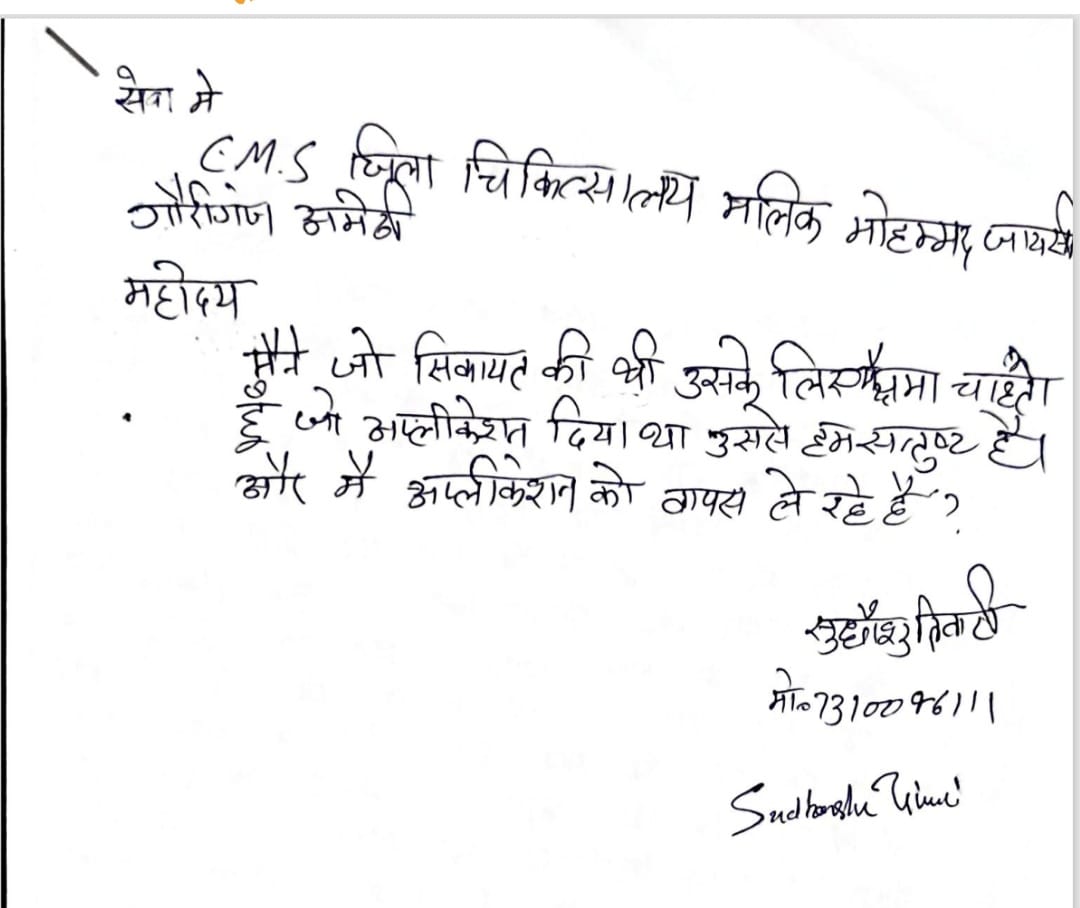 सेवा मे
C.M.S जिला चिकित्सालय मलिक मोहम्मद जायसी
गौरीगंज अमेठी
महोदय
मैने जो सिकायत की थी उसके लिए क्षमा चाहता
हूँ जो अप्लीकेशन दिया था उससे हम सन्तुष्ट है।
और मै अप्लीकेशन को वापस ले रहे हैं ?
सुधाँशु तिवारी
मो०7310096111
Sudhanshu Tiwari